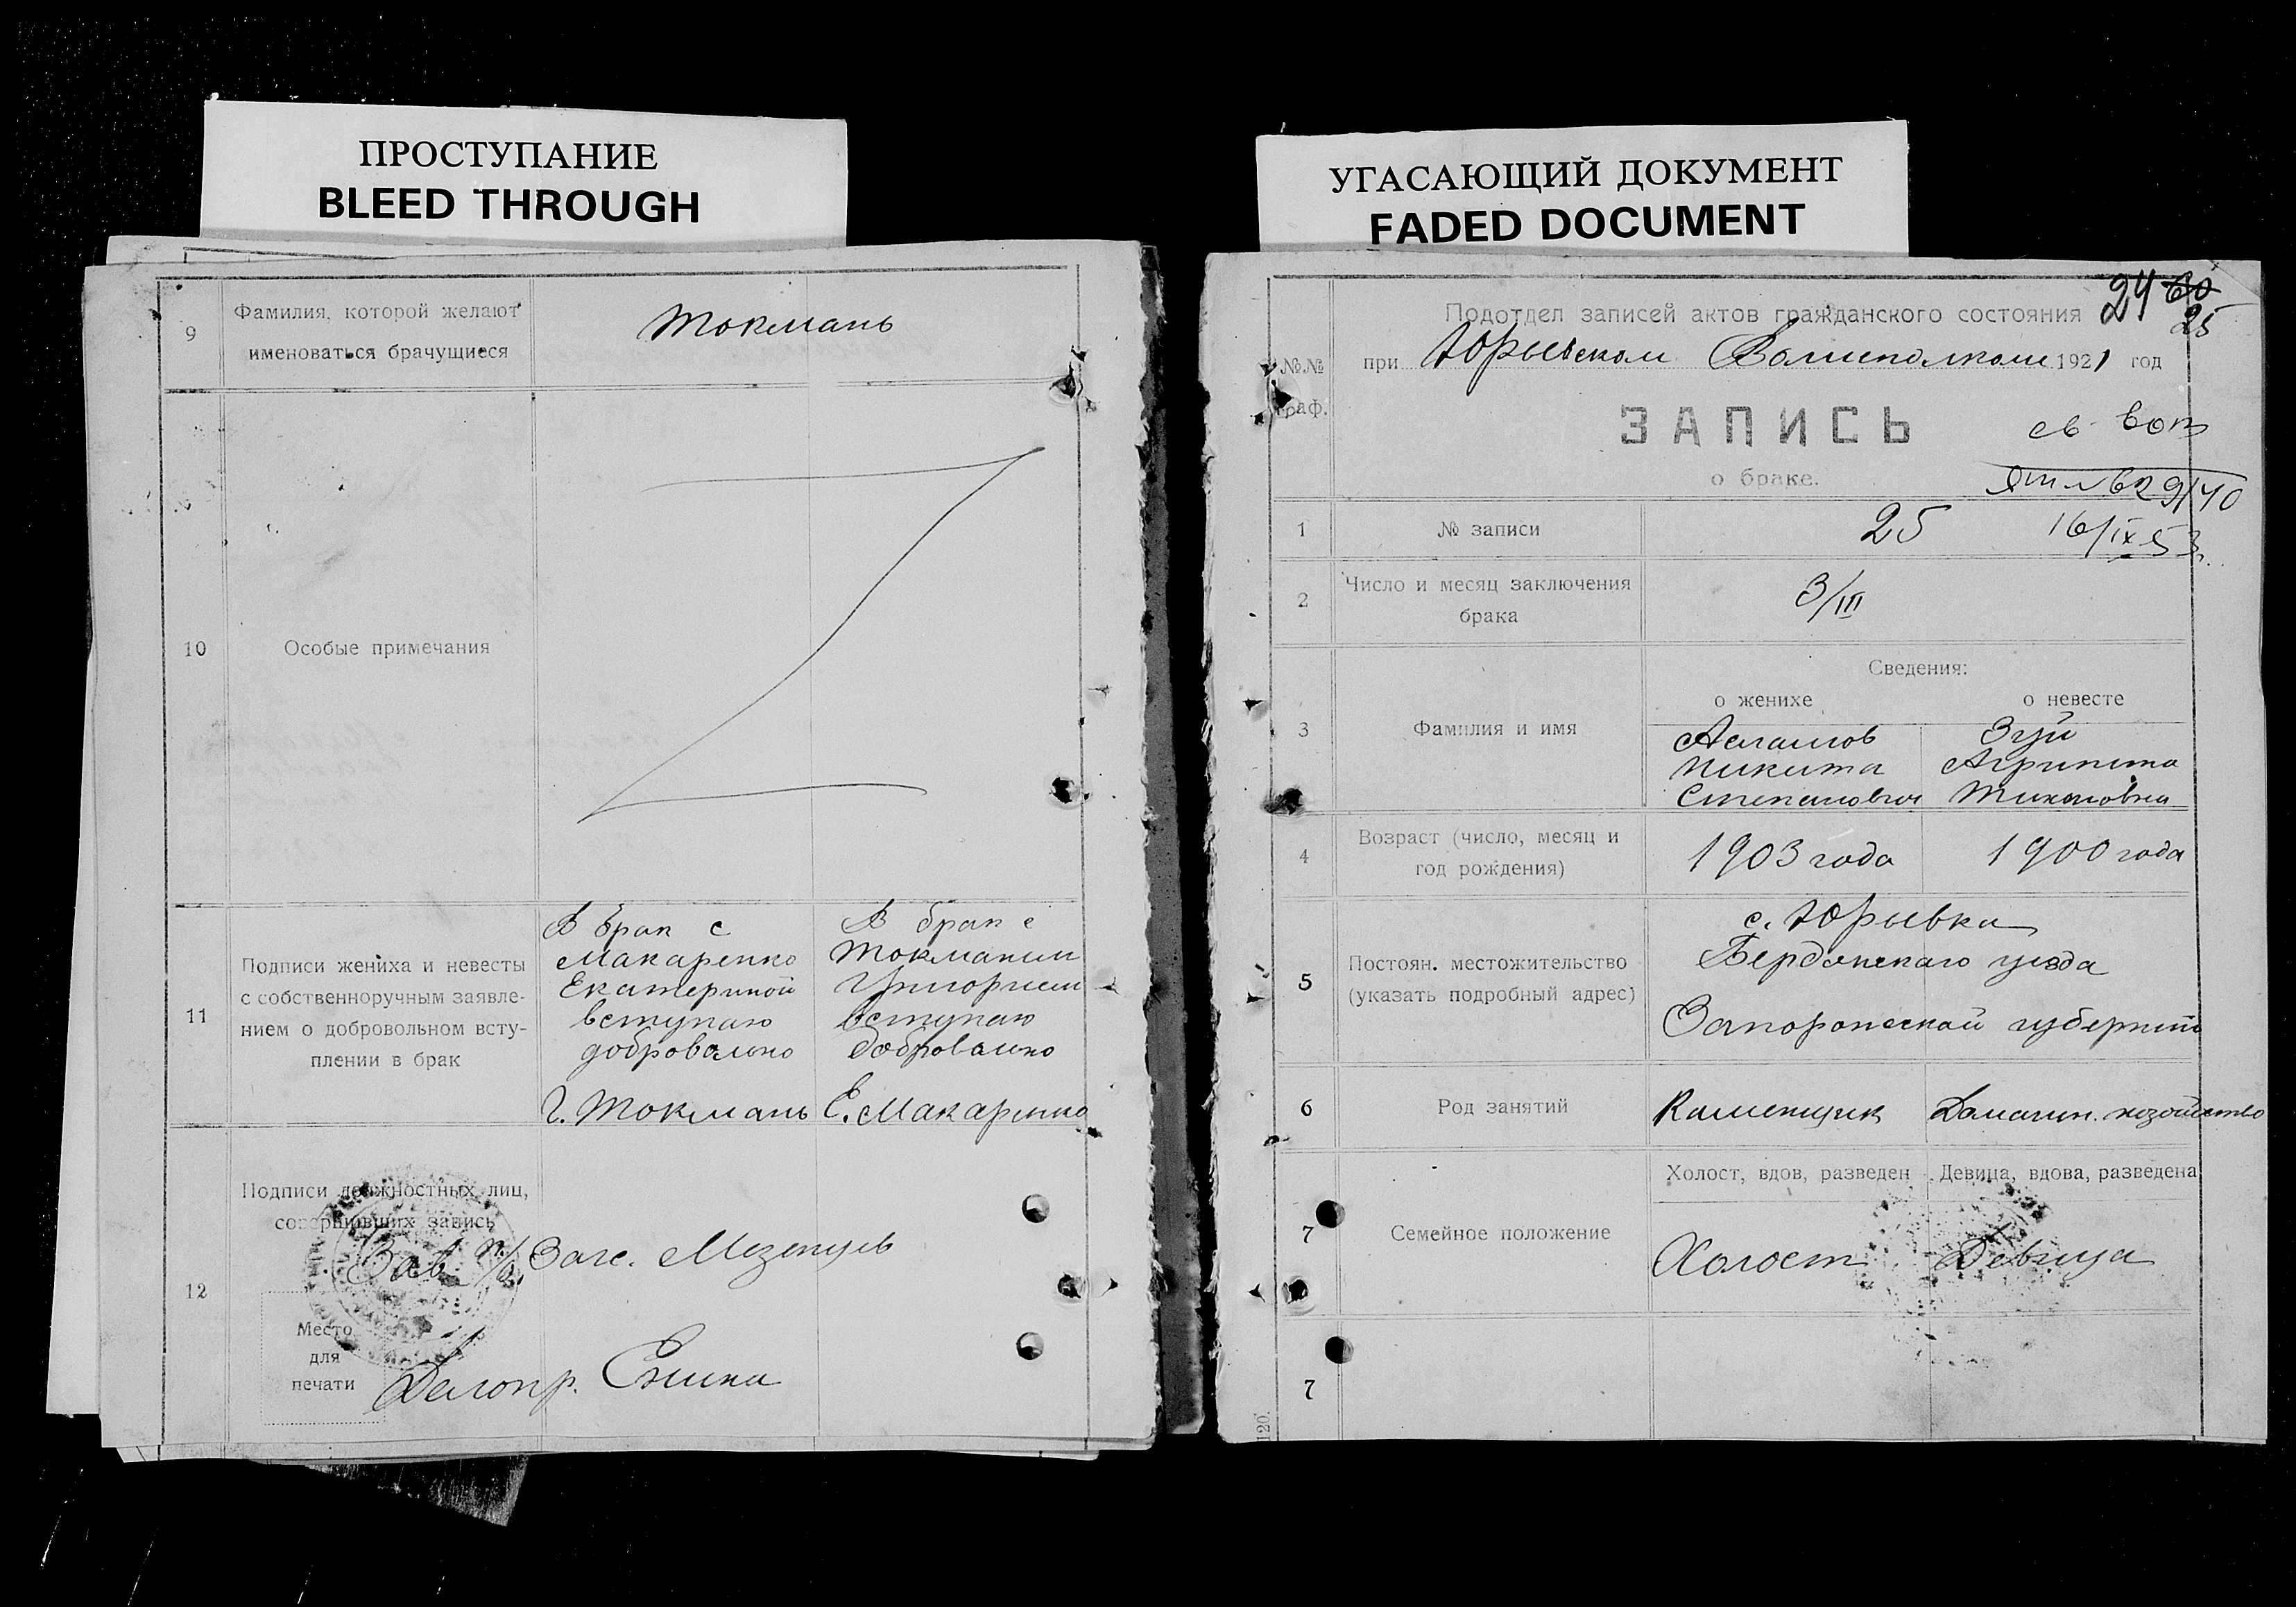 ПРОСТУПАНИЕ
BLEED THROUGH
9
Фамилия, которой желают
именоваться брачущиеся
Токмань
10
Особые примечания
11
Подписи жениха и невесты
с собственноручным заявле-
нием о добровольном всту-
плении в брак
В брак с
Макаренко
Екатериной
вступаю
добровольно
Г. Токмань
В брак с
Токманим
Григорием
вступаю
добровольно
Е. Макаренко
12
Подписи должностных лиц,
совершивших запись
Зав. п/о Загс. Мезенцев
Место
для
печати
Делопр.
УГАСАЮЩИЙ ДОКУМЕНТ
FADED DOCUMENT
24 60
25
Подотдел записей актов гражданского состояния
№№
граф.
при Юрьевском Волисполкоме 1921 год
ЗАПИСЬ
о браке.
9/40
16/IX 53
1
№ записи
25
2
Число и месяц заключения
брака
3/III
Сведения:
о женихе
о невесте
3
Фамилия и имя
Асламов
Никита
Степанович
Зуй
Агрипина
Тихоновна
4
Возраст (число, месяц и
год рождения)
1903 года
1900 года
5
Постоян. местожительство
(указать подробный адрес)
с. Юрьевка
Бердянскаго уезда
Запорожской губернии
6
Род занятий
Каменщик
Домашн. хозойство
7
Семейное положение
Холост, вдов, разведен
Девица, вдова, разведена
Холост
Девица
7
120.